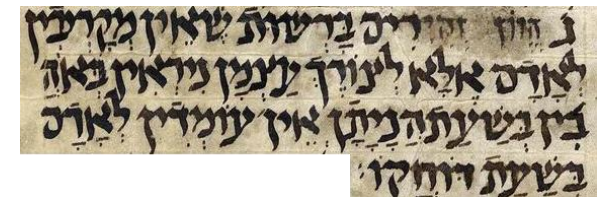 ג הוון זהירים ברשות שאין מקרבין
לאדם אלא לצורך עצמן ניראין כאוה
בין בשעת הניתן אין עומדין לאדם
בשעת דוחקו